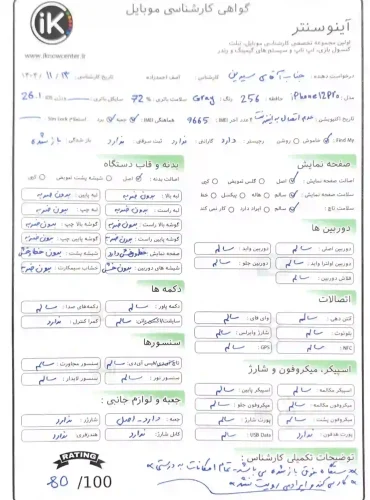 گواهی کارشناسی موبایل
iK
www.iknowcenter.ir
آینوسنتر
اولین مجموعه تخصصی کارشناسی موبایل، تبلت
کنسول بازی، لپ تاپ و ساعت های گیمینگ و رندر
درخواست دهنده : جناب آقای کارشناس : آصف احمدزاده تاریخ کارشناسی : ۱۴۰۲/۱۱/۱۳
مدل : iPhone12Pro حافظه : 256 رنگ : Gray سلامت باتری : % 72 سیکل باتری : 26.1
تاریخ اکتیویشن : عدم اتصال به اینترنت ۴ عدد آخر IMEI : 9665 هماهنگی IMEI : جعبه بدنه Sim lock Status
Find My : خاموش روشن رجیستر : دارد گارانتی : ندارد ثبت سرقتی : ندارد باز شدگی : باز شده
صفحه نمایش
اصالت صفحه نمایش : اصل گلس تعویض کپی
سلامت صفحه نمایش : سالم هاله پیکسل خط
سلامت تاچ : سالم ایراد دارد کار نمی کند
بدنه و قاب دستگاه
اصالت بدنه : اصل شیشه پشت تعویض کپی
لبه بالا : بدون ضربه لبه پایین : بدون ضربه
لبه راست : بدون ضربه لبه چپ : بدون ضربه
گوشه بالا راست : بدون ضربه گوشه بالا چپ : بدون ضربه
گوشه پایین راست : بدون ضربه گوشه پایین چپ : بدون ضربه
صفحه نمایش : خط و خش دارد شیشه پشت : بدون خط و خش
شیشه های دوربین : بدون خش خشاب سیمکارت : بدون ضربه
دوربین ها
دوربین اصلی : سالم دوربین واید : سالم
دوربین اولترا واید : سالم دوربین جلو : سالم
فلاش دوربین : سالم
دکمه ها
دکمه پاور : سالم دکمه‌های صدا : سالم
سایلنت/اکشن : سالم کمرا کنترل : ندارد
اتصالات
آنتن دهی : سالم وای فای : سالم
بلوتوث : سالم شارژ وایرلس : سالم
NFC : سالم GPS : سالم
سنسورها
تاچ آیدی/فیس آیدی : سالم سنسور مجاورت : سالم
سنسور نور : سالم سنسور لایدار : سالم
اسپیکر، میکروفون و شارژ
اسپیکر مکالمه : سالم اسپیکر پایین : سالم
میکروفون مکالمه : سالم میکروفون جلو : سالم
میکروفون پشت : سالم پورت شارژ : سالم
پورت هدفون : ندارد USB Data : سالم
جعبه و لوازم جانبی :
جعبه : دارد - اصل شارژر : ندارد
کابل شارژ : ندارد هندزفری : ندارد
توضیحات تکمیلی کارشناس :
« دستگاه فوق باز شده می باشد - تمام امکانات به درستی
کار می کند و ایرادی رویت نشد »
RATING
80 /100